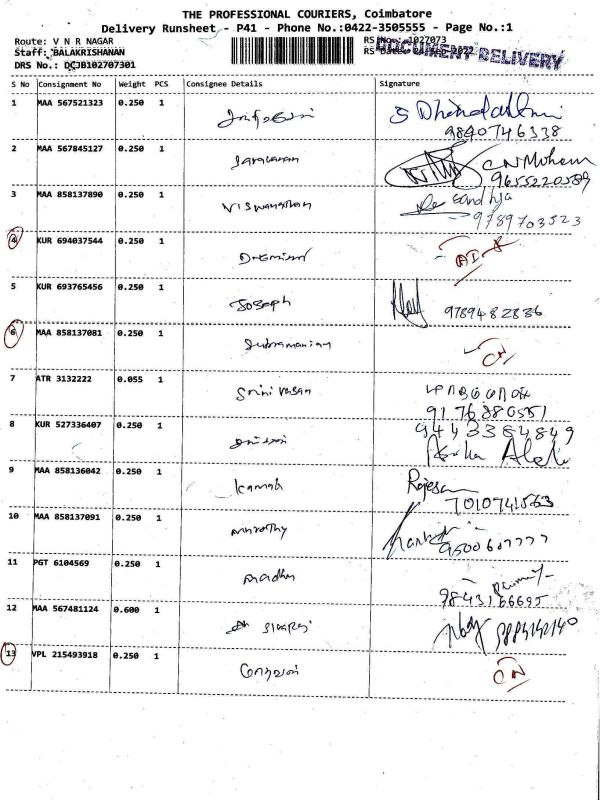 THE PROFESSIONAL COURIERS, Coimbatore
Delivery Runsheet - P41 - Phone No.:0422-3505555 - Page No.:1
Route: V N R NAGAR
RS No.: 1027073
Staff: BALAKRISHANAN
RS Date: 2022
DOCUMENT DELIVERY
DRS No.: DCJB102707301
S No Consignment No Weight PCS Consignee Details Signature
1 MAA 567521323 0.250 1
9840746338
2 MAA 567845127 0.250 1 Saravanan C N Mohan
9655220589
3 MAA 858137890 0.250 1 Viswanathan Sandhja
9789703523
4 KUR 694037544 0.250 1
5 KUR 693765456 0.250 1 Joseph 9789482836
6 MAA 858137081 0.250 1 Subramaniam CN
7 ATR 3132222 0.055 1 Srinivasan
9176880551
8 KUR 527336407 0.250 1 9443384849
9 MAA 858136042 0.250 1 Kamali
7010741563
10 MAA 858137091 0.250 1 Murothy
9500607777
11 PGT 6104569 0.250 1 Madhu
9843166695
12 MAA 567481124 0.600 1
13 VPL 215493918 0.250 1 CN